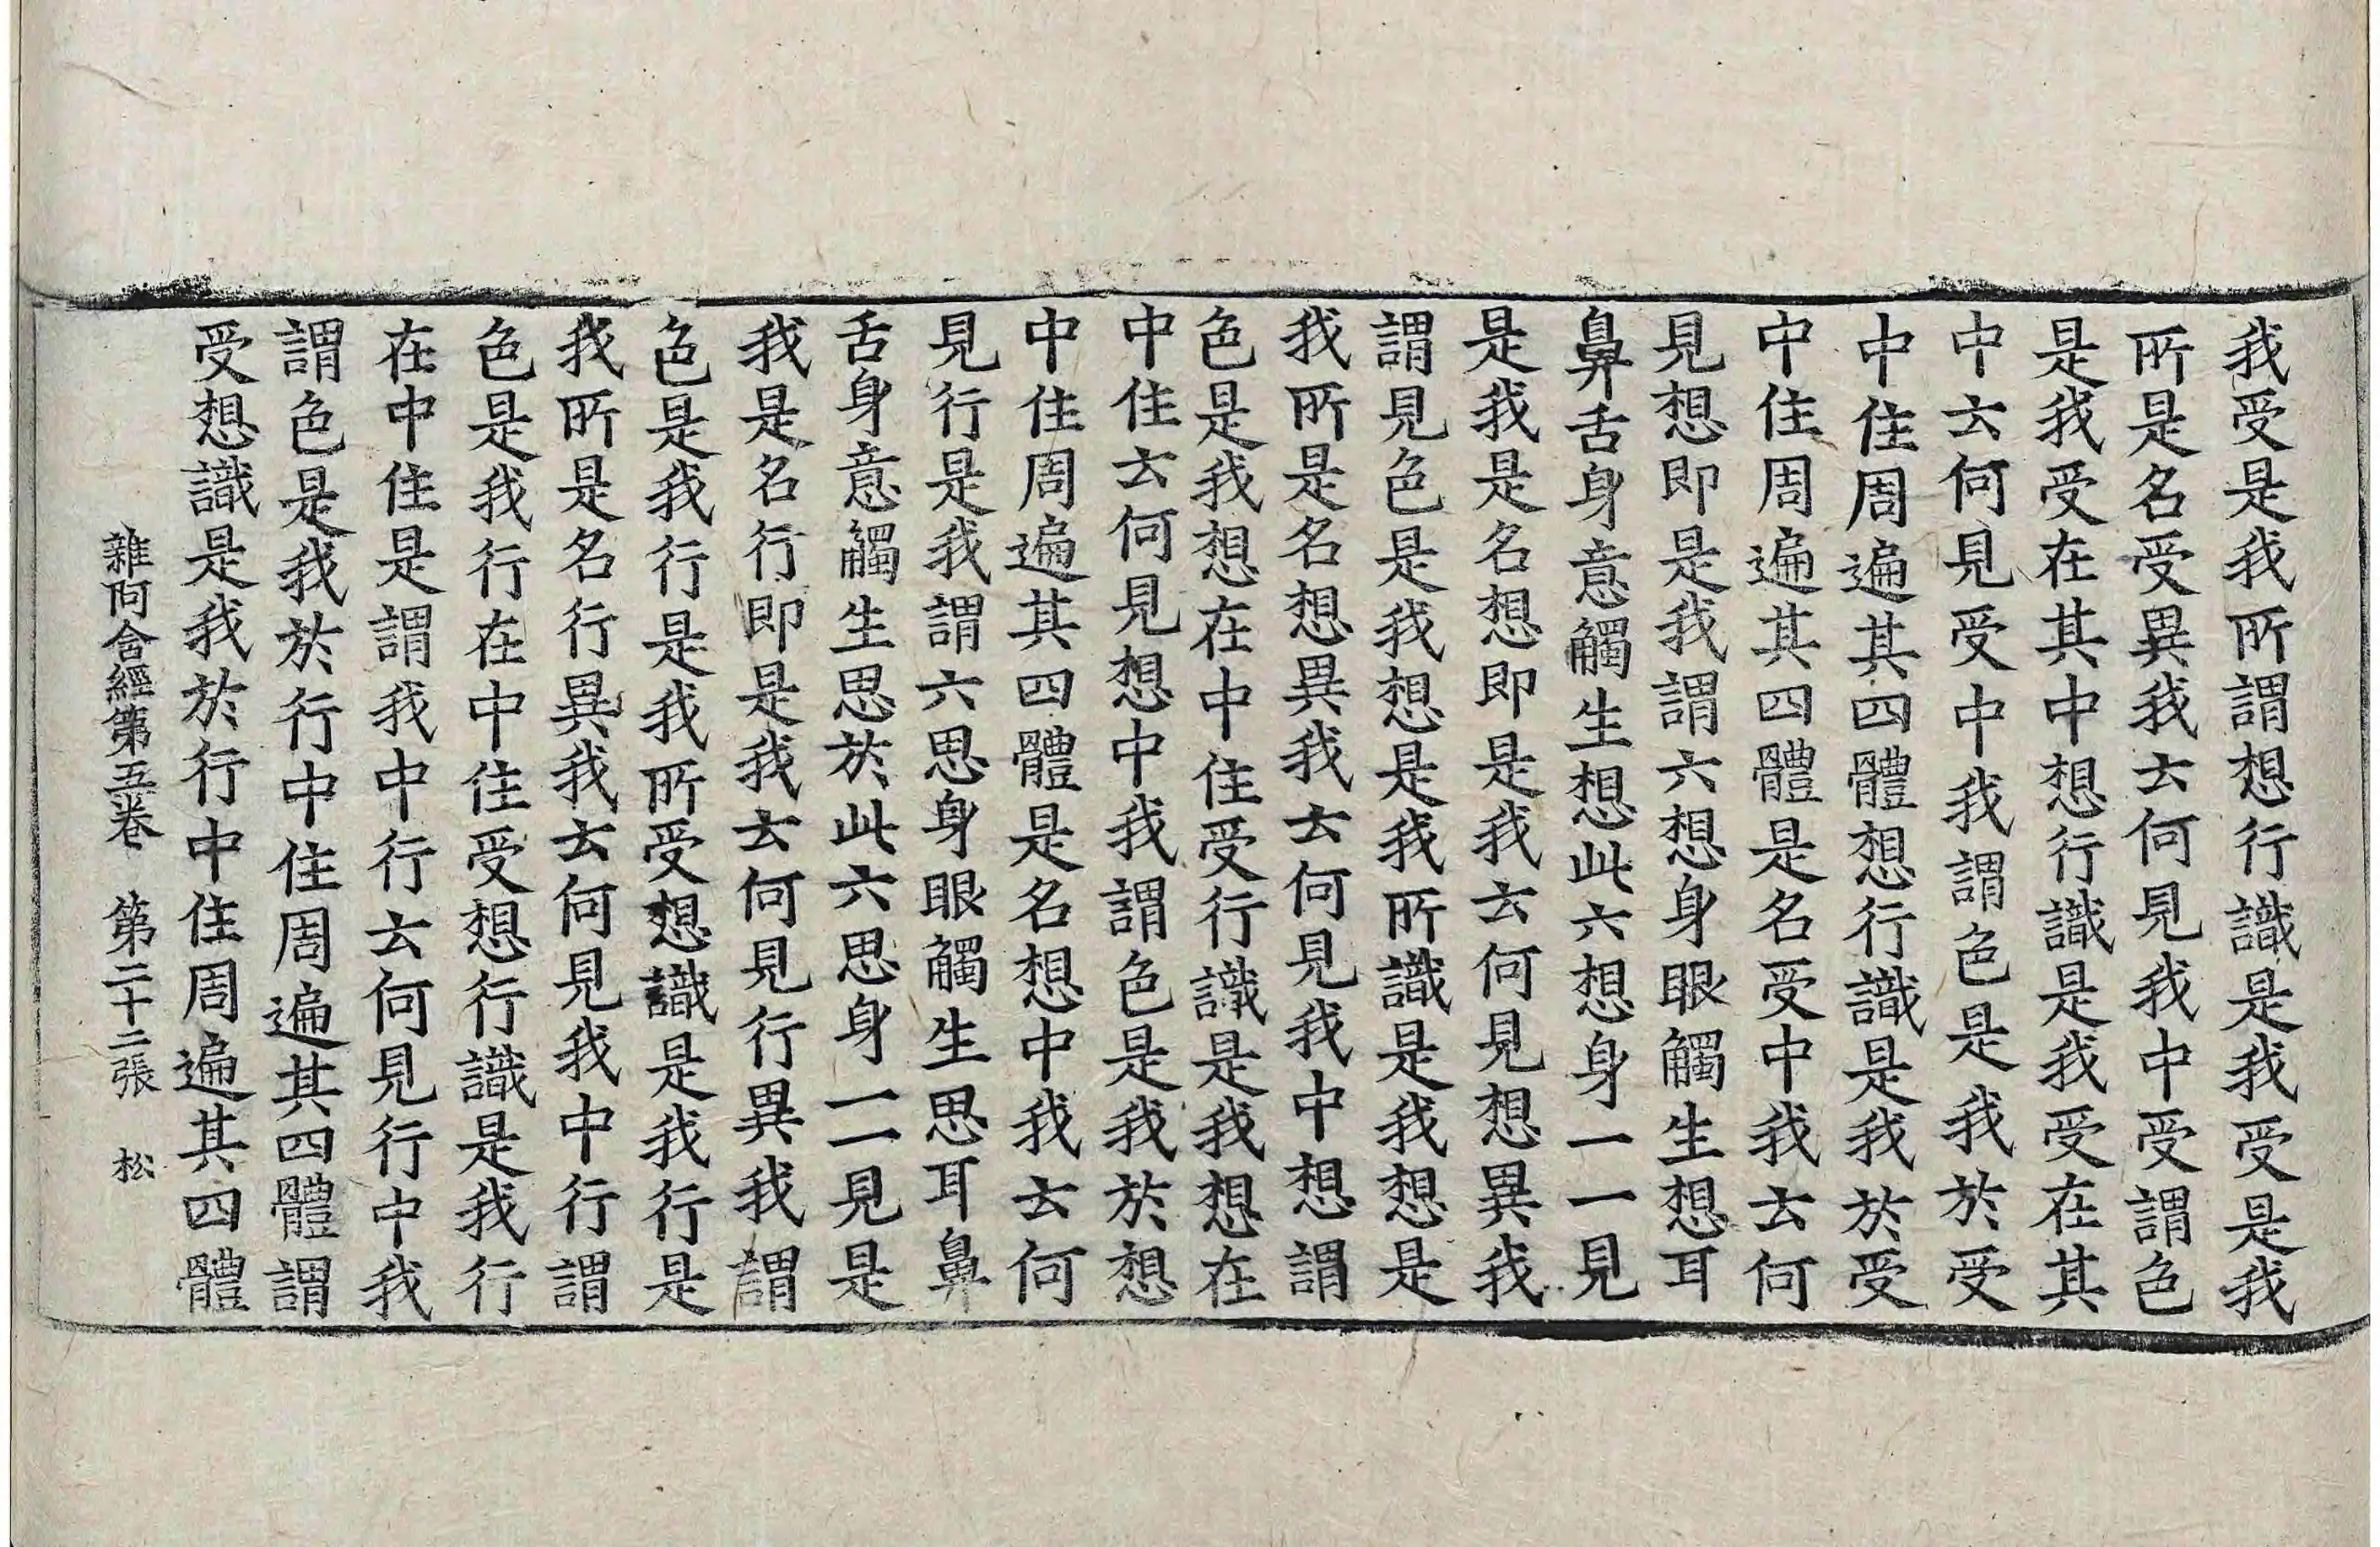 我受是我所謂想行識是我受是我
所是名受異我云何見我中受謂色
是我受在其中想行識是我受在其
中云何見受中我謂色是我於受
中住周遍其四體想行識是我於受
中住周遍其四體是名受中我云何
見想即是我謂六想身眼觸生想耳
鼻舌身意觸生想此六想身一一見
是我是名想即是我云何見想異我
謂見色是我想是我所識是我想是
我所是名想異我云何見我中想謂
色是我想在中住受行識是我想在
中住云何見想中我謂色是我於想
中住周遍其四體是名想中我云何
見行是我謂六思身眼觸生思耳鼻
舌身意觸生思於此六思身一一見是
我是名行即是我云何見行異我謂
色是我行是我所受想識是我行是
我所是名行異我云何見我中行謂
色是我行在中住受想行識是我行
在中住是謂我中行云何見行中我
謂色是我於行中住周遍其四體謂
受想識是我於行中住周遍其四體
雜阿含經第五卷 第二十二張 松